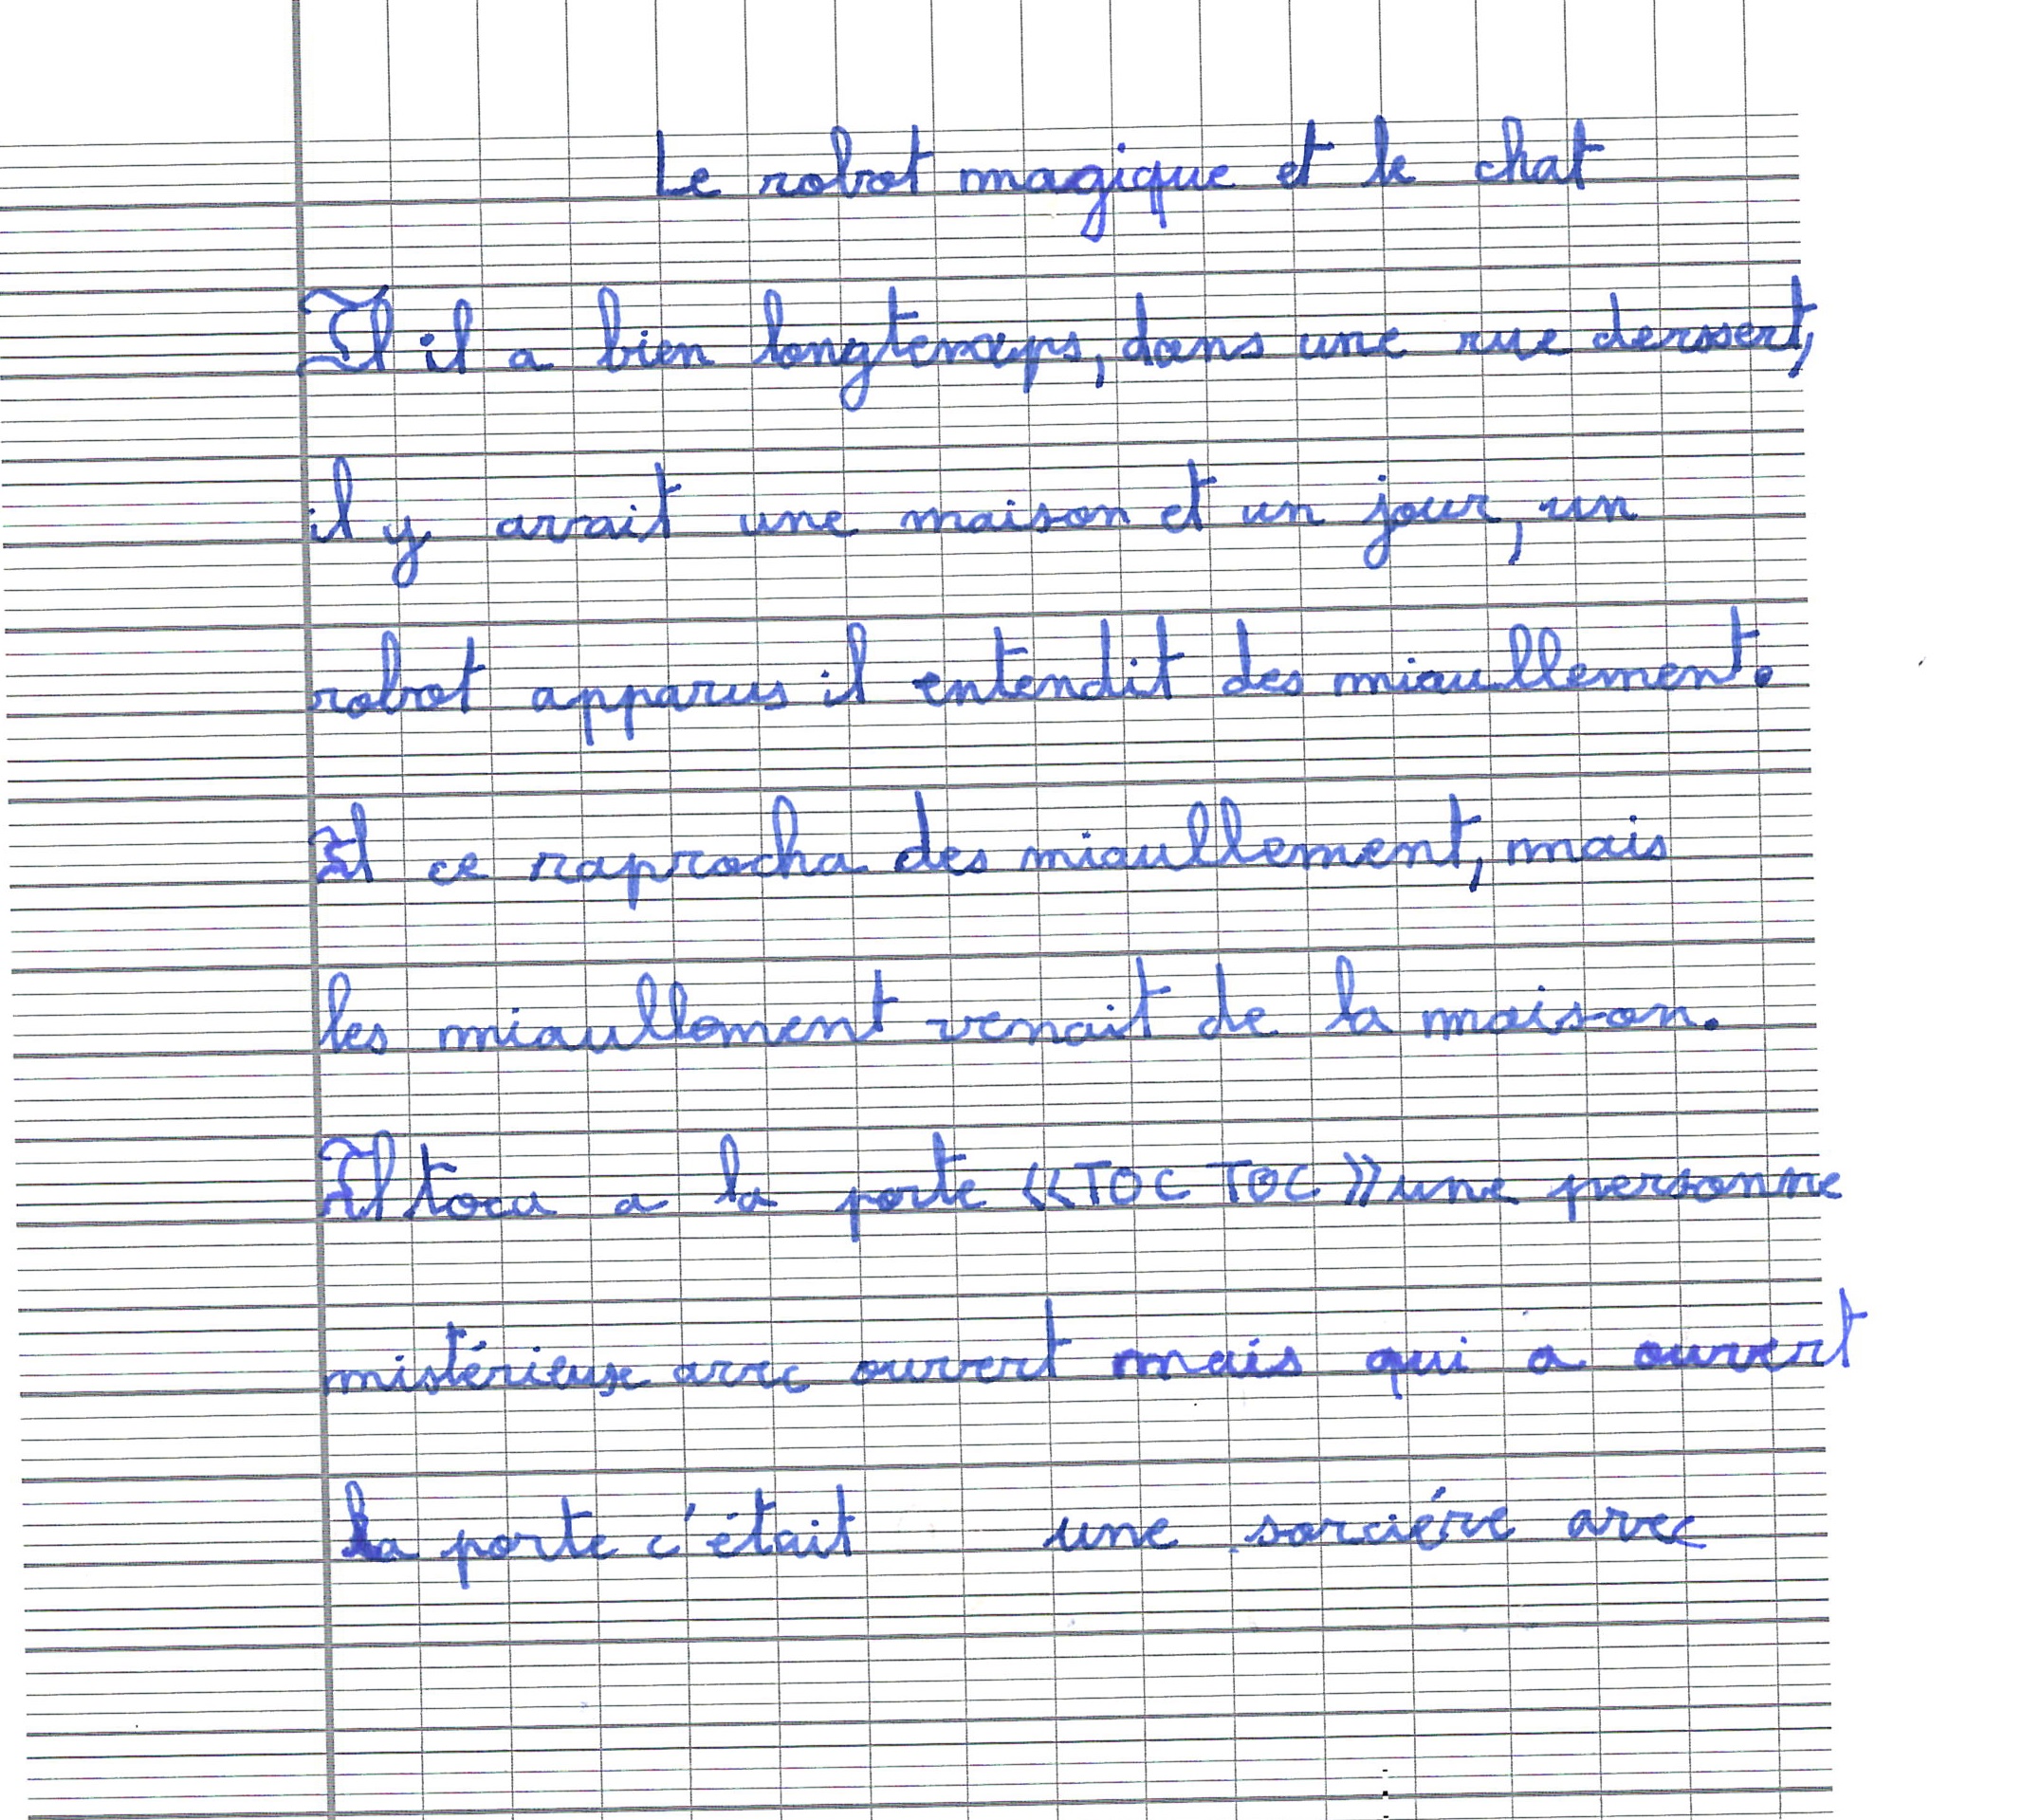 Le robot magique et le chat
Il il a bien longtemps, dans une rue derssert,
il y avait une maison et un jour, un
robot apparus il entendit des miaullement.
Il ce raprocha des miaullement, mais
les miaullement venait de la maison.
Il toca a la porte «TOC TOC» une personne
mistérieuse avec ouvert mais qui a ouvert
la porte c'était une sorciére avec